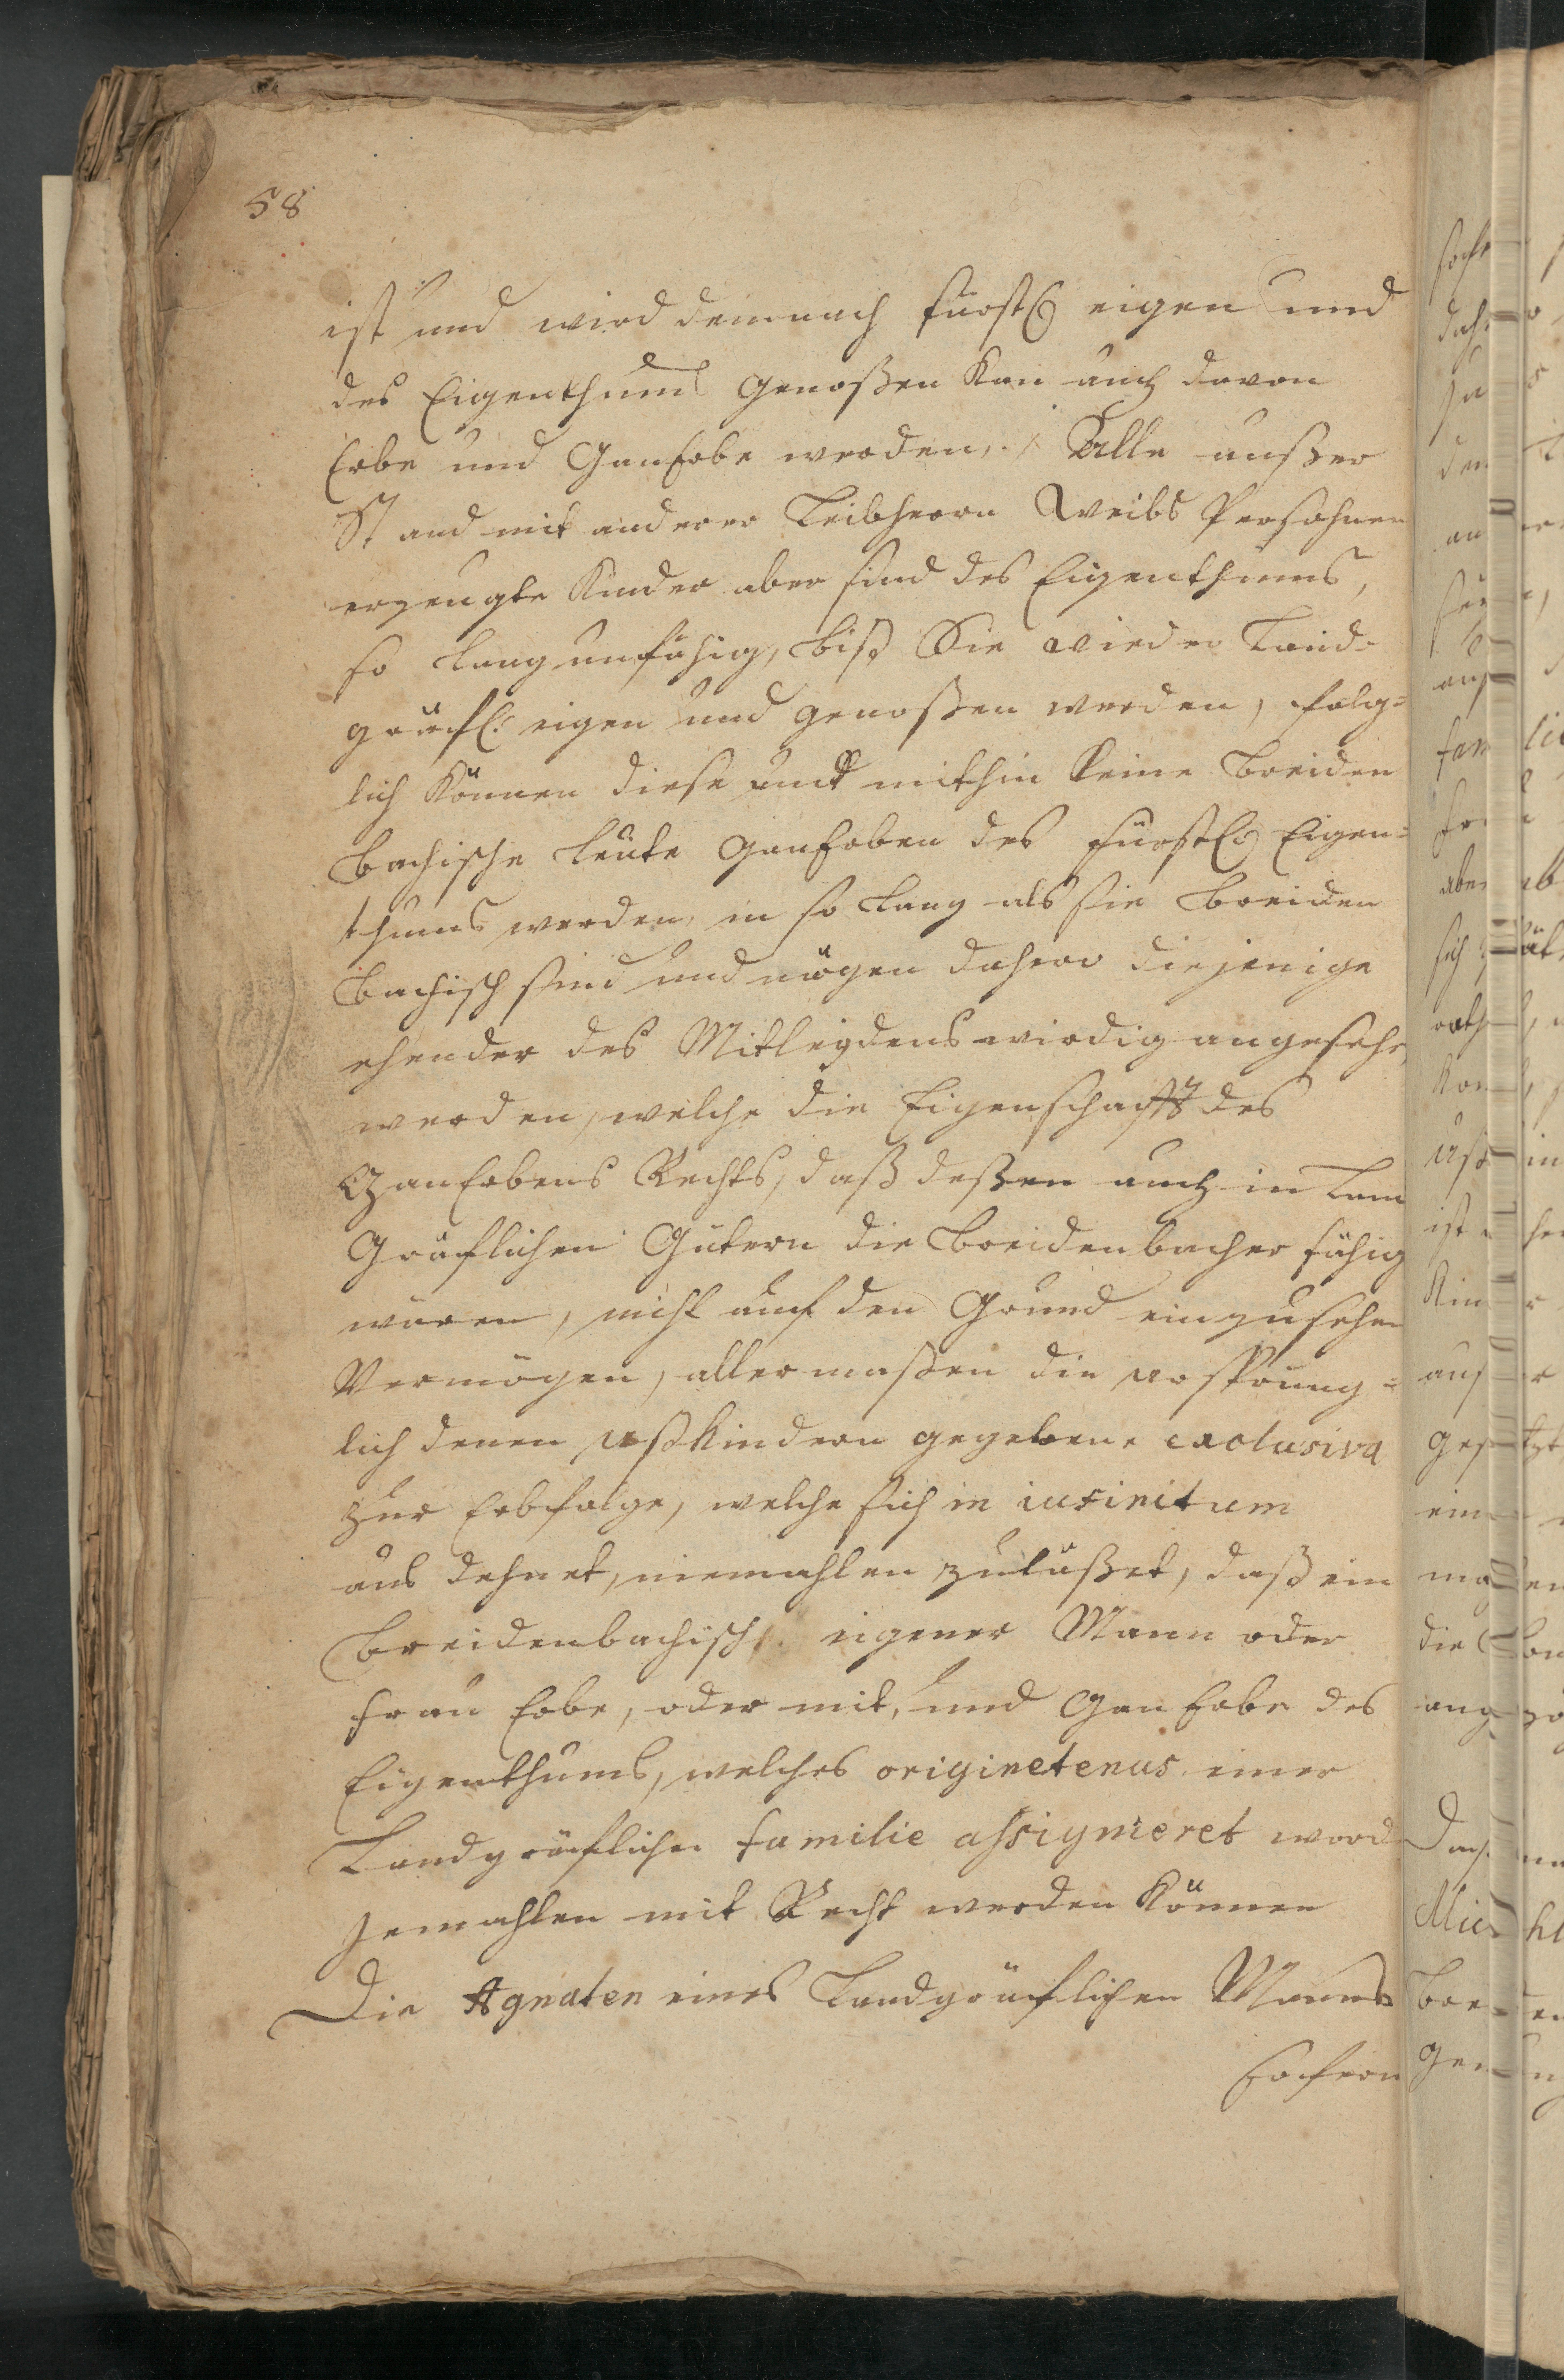 58
ist und wird demnach fürstl. eigen und
des Eigenthums genoßen kan auch davon
Erbe und GanErbe werden, / Alle außer
Stand mit anderer Leibherrn Weibs Persohnen
erzeugte Kinder aber sind des Eigenthums,
so lang unfähig, biß Sie wieder Land=
gräfl: eigen und genoßen werden, folg=
lich können diese und mithin keine Breiden
bachische Leute GanErben des fürstl. Eigen=
thums werden, in so lang als sie Breiden
bachisch sind und mögen dahero diejenige
ehender des Mitleydens wirdig angesehe
werden, welche die Eigenschafft des
GanErbens Rechts, daß deßen auch in Land
Gräflichen Gütern die Breidenbacher fähig
wären, nicht auf den Grund einzusehen
Vermögen, allermaßen die urspürung=
lich denen ußKindern gegebene exclusiva
zur Erbfolge, welche sich in infinitum
aus dehnet, niemahlen zuläßet, daß ein
Breidenbachisch eigener Mann oder
Frau Erbe, oder mit, und GanErbe des
Eigenthums, welches originetenus einer
Landgräflichen familie assigniret word
jemahlen mit Recht werden können
Die Agnaten eines Landgräflichen Manns